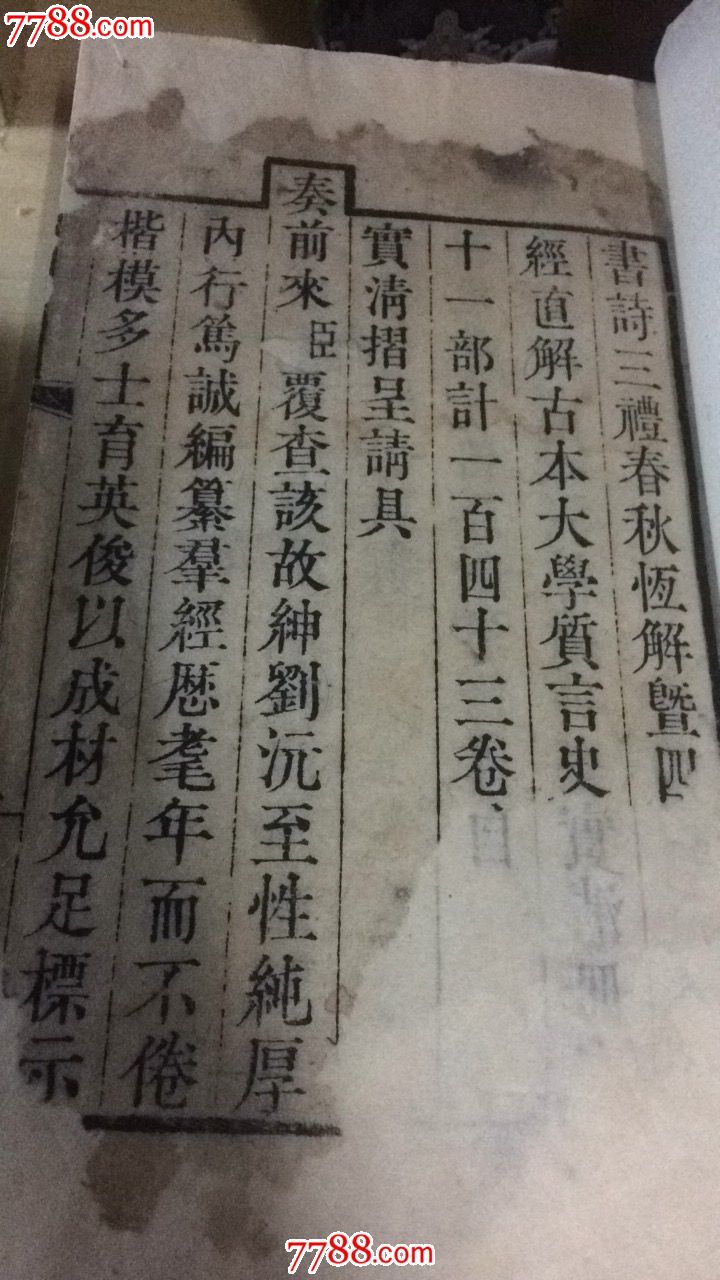 7788.com
書詩三禮春秋恆解暨四
經直解古本大學質言史
十一部計一百四十三卷
實清摺呈請具
奏前來臣覆查該故紳劉沅至性純厚
內行篤誠編纂羣經歷耄年而不倦
楷模多士育英俊以成材允足標示
7788.com